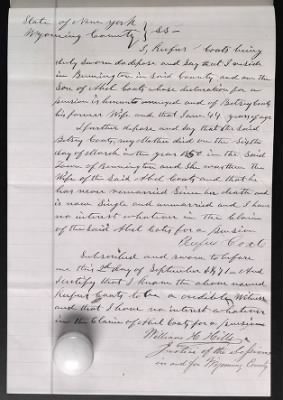 State of New York
Wyoming County } SS -
I, Rufus Coats being
duly sworn do depose and say that I reside
in Bennington in Said County and am the
Son of Abel Coats whose declaration for a
pension is hereunto annexed and of Betsey Coats
his former Wife and that I am 44 years of age
I further depose and say that the Said
Betsey Coats, my Mother died on the Sixth
day of March in the year 1850 in the Said
Town of Bennington and She was then the
Wife of the said Abel Coats and that he
has never remarried Since her death and
is now Single and unmarried and I have
no interest whatever in the Claim
of the Said Abel Coats for a pension
Rufus Coats
Subscribed and sworn to before
me this 2nd day of September 1871 - And
I certify that I know the above named
Rufus Coats to be a credible Witness
and that I have no interest whatever
in the Claim of Abel Coats for a pension
William H. Hills
Justice of the Sessions
in and for Wyoming County